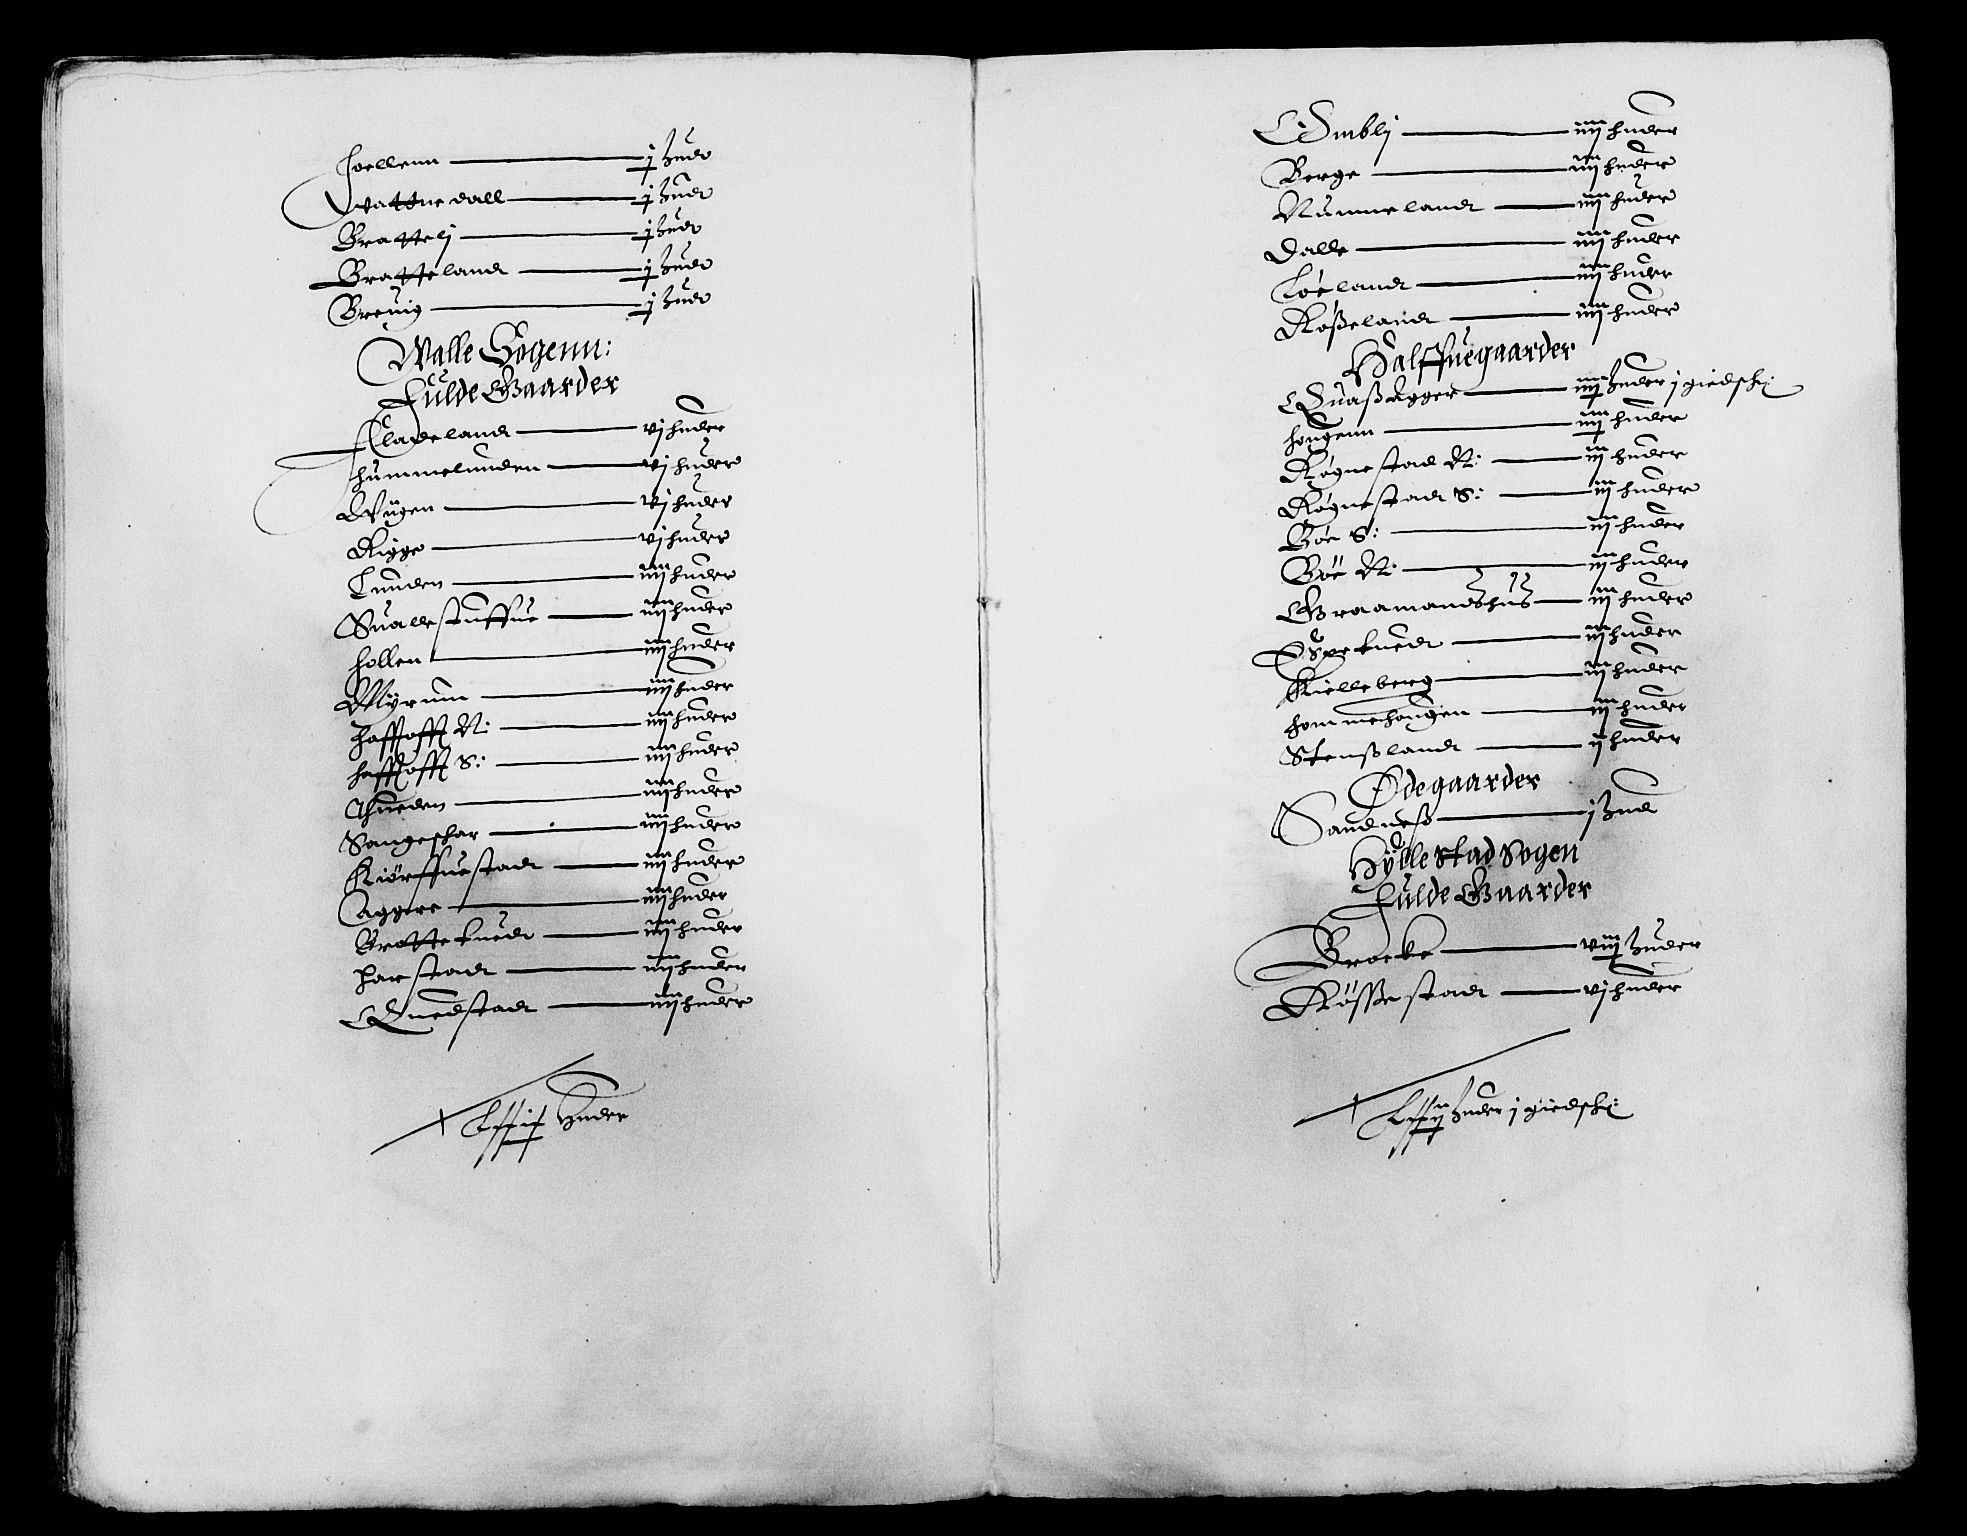 Hoellenn — j hudt
Wattnedall — j hudt
Brattelj — j hudt
Bratteland — j hudt
Breuig — j hudt
Walle Sogenn:
Fulde Gaarder
Fladelandt — vj huder
Hummelunden — vj huder
Viigen — vj huder
Rigge — vj huder
Lunden — iiij huder
Sualestuffue — iiij huder
Hollen — iiij huder
Myrum — iiij huder
Hafftzofft N: — iiij huder
Hafftzofft S: — iiij huder
Thueden — iiij huder
Sangeskar — iiij huder
Kiörffuestadt — iiij huder
Aggere — iiij huder
Brottetuedt — iiij huder
Harstadt — iiij huder
Quedstadt — iiij huder
huder
Omblj — iiij huder
Berge — iiij huder
Nummelandt — iiij huder
Dalle — iiij huder
Löelandt — iiij huder
Roßelandt — iiij huder
Halffuegaarder
Quaßagger — iiij huder j giedsk:
Hougenn — iiij huder
Rögnestad N: — iij huder
Rögnestadt S: — iij huder
Böe S: — iij huder
Böe N: — iij huder
Graamandshus — iij huder
Espetuedt — iij huder
Kielleberg — iij huder
Hommehougen — iij huder
Stenßlandt — ij huder
Ødegaarder
Sandneß — j hud
Hyllestad Sogen
Fulde Gaarder
Brocke — viij huder
Rösßestadt — vj huder
huder j giedsk: